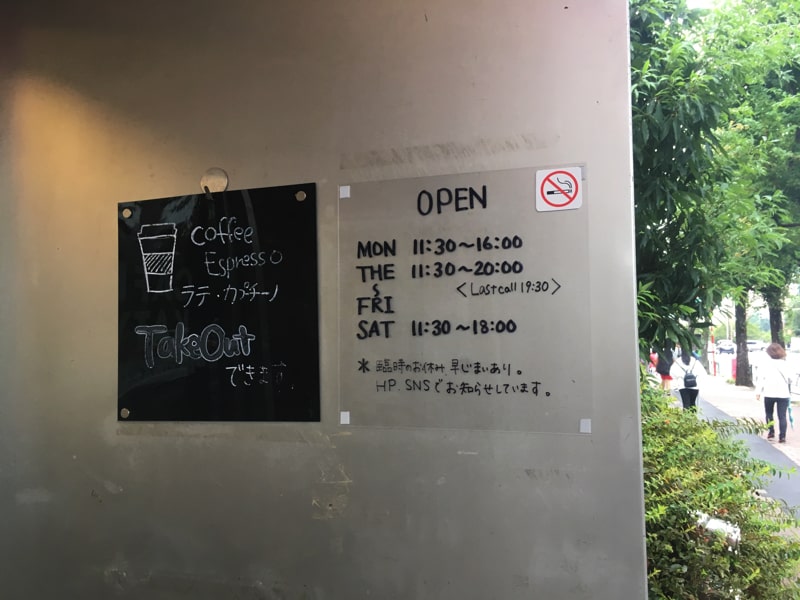 Coffee
Espresso
ラテ・カプチーノ
TakeOut
できます。
OPEN
MON 11:30～16:00
THE 11:30～20:00
〜 <Last call 19:30>
FRI
SAT 11:30～18:00
* 臨時のお休み、早じまいあり。
HP. SNSでお知らせしています。